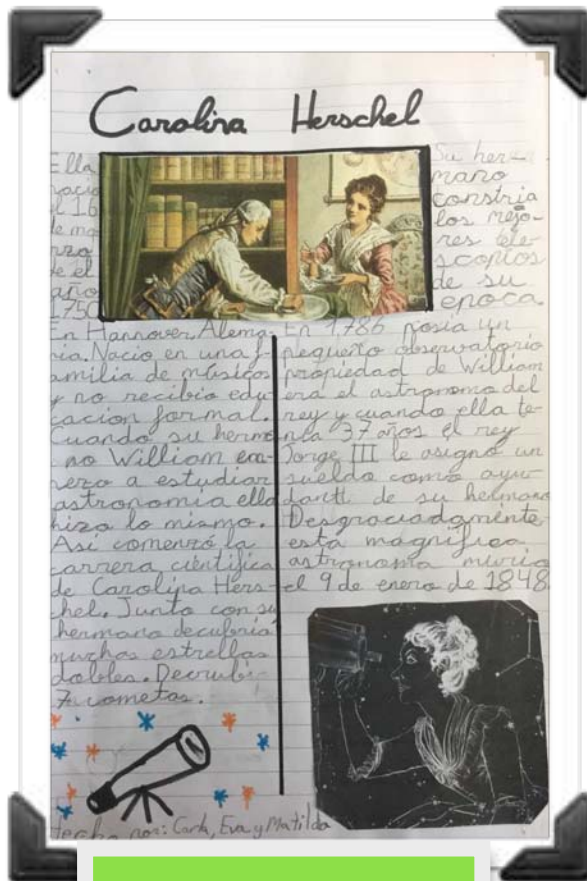 Carolina Herschel
Ella
nacio
el 16
de ma
rzo
de el
año
1750
En Hannover, Alema-
nia. Nacio en una f-
amilia de músicos
y no recibio edu-
cacion formal.
Cuando su herma
no William em-
pezo a estudiar
astronomia ella
hizo lo mismo.
Asi comenzó la
carrera científica
de Carolina Hers-
chel. Junto con su
hermano decubria
muchas estrellas
dobles. Decrubi
7 cometas.
Su her-
mano
constria
los mejo-
res tele-
scopios
de su
epoca.
En 1786 posia un
pequeño observatorio
propiedad de William
era el astronomo del
rey y cuando ella te-
nia 37 años el rey
Jorge III le asignó un
sueldo como ayu-
danti de su hermano
Desgraciadaminte
esta magnifica
astronoma murio
el 9 de enero de 1848.
Hecho por: Carla, Eva y Matilda